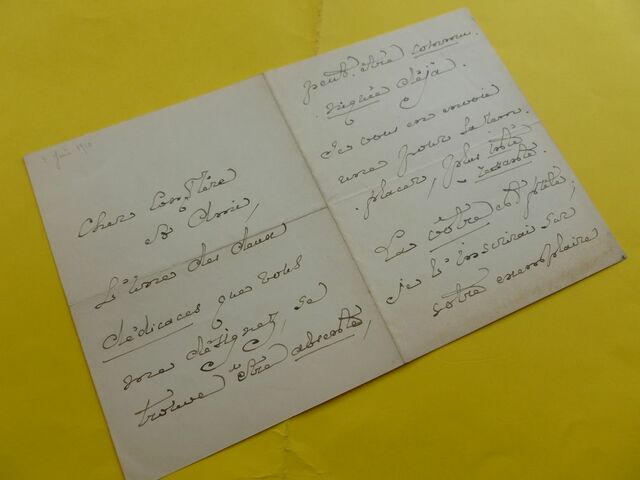 Juin 1910
Cher Confrère
et Ami,
L'une des deux
dédicaces que vous
me désignez, se
trouve être absente,
peut-être commu-
niquée déjà.
Je vous en envoie
une pour la rem-
placer, plus inté-
ressante.
La vôtre est prête;
je l'inscrirais sur
votre exemplaire